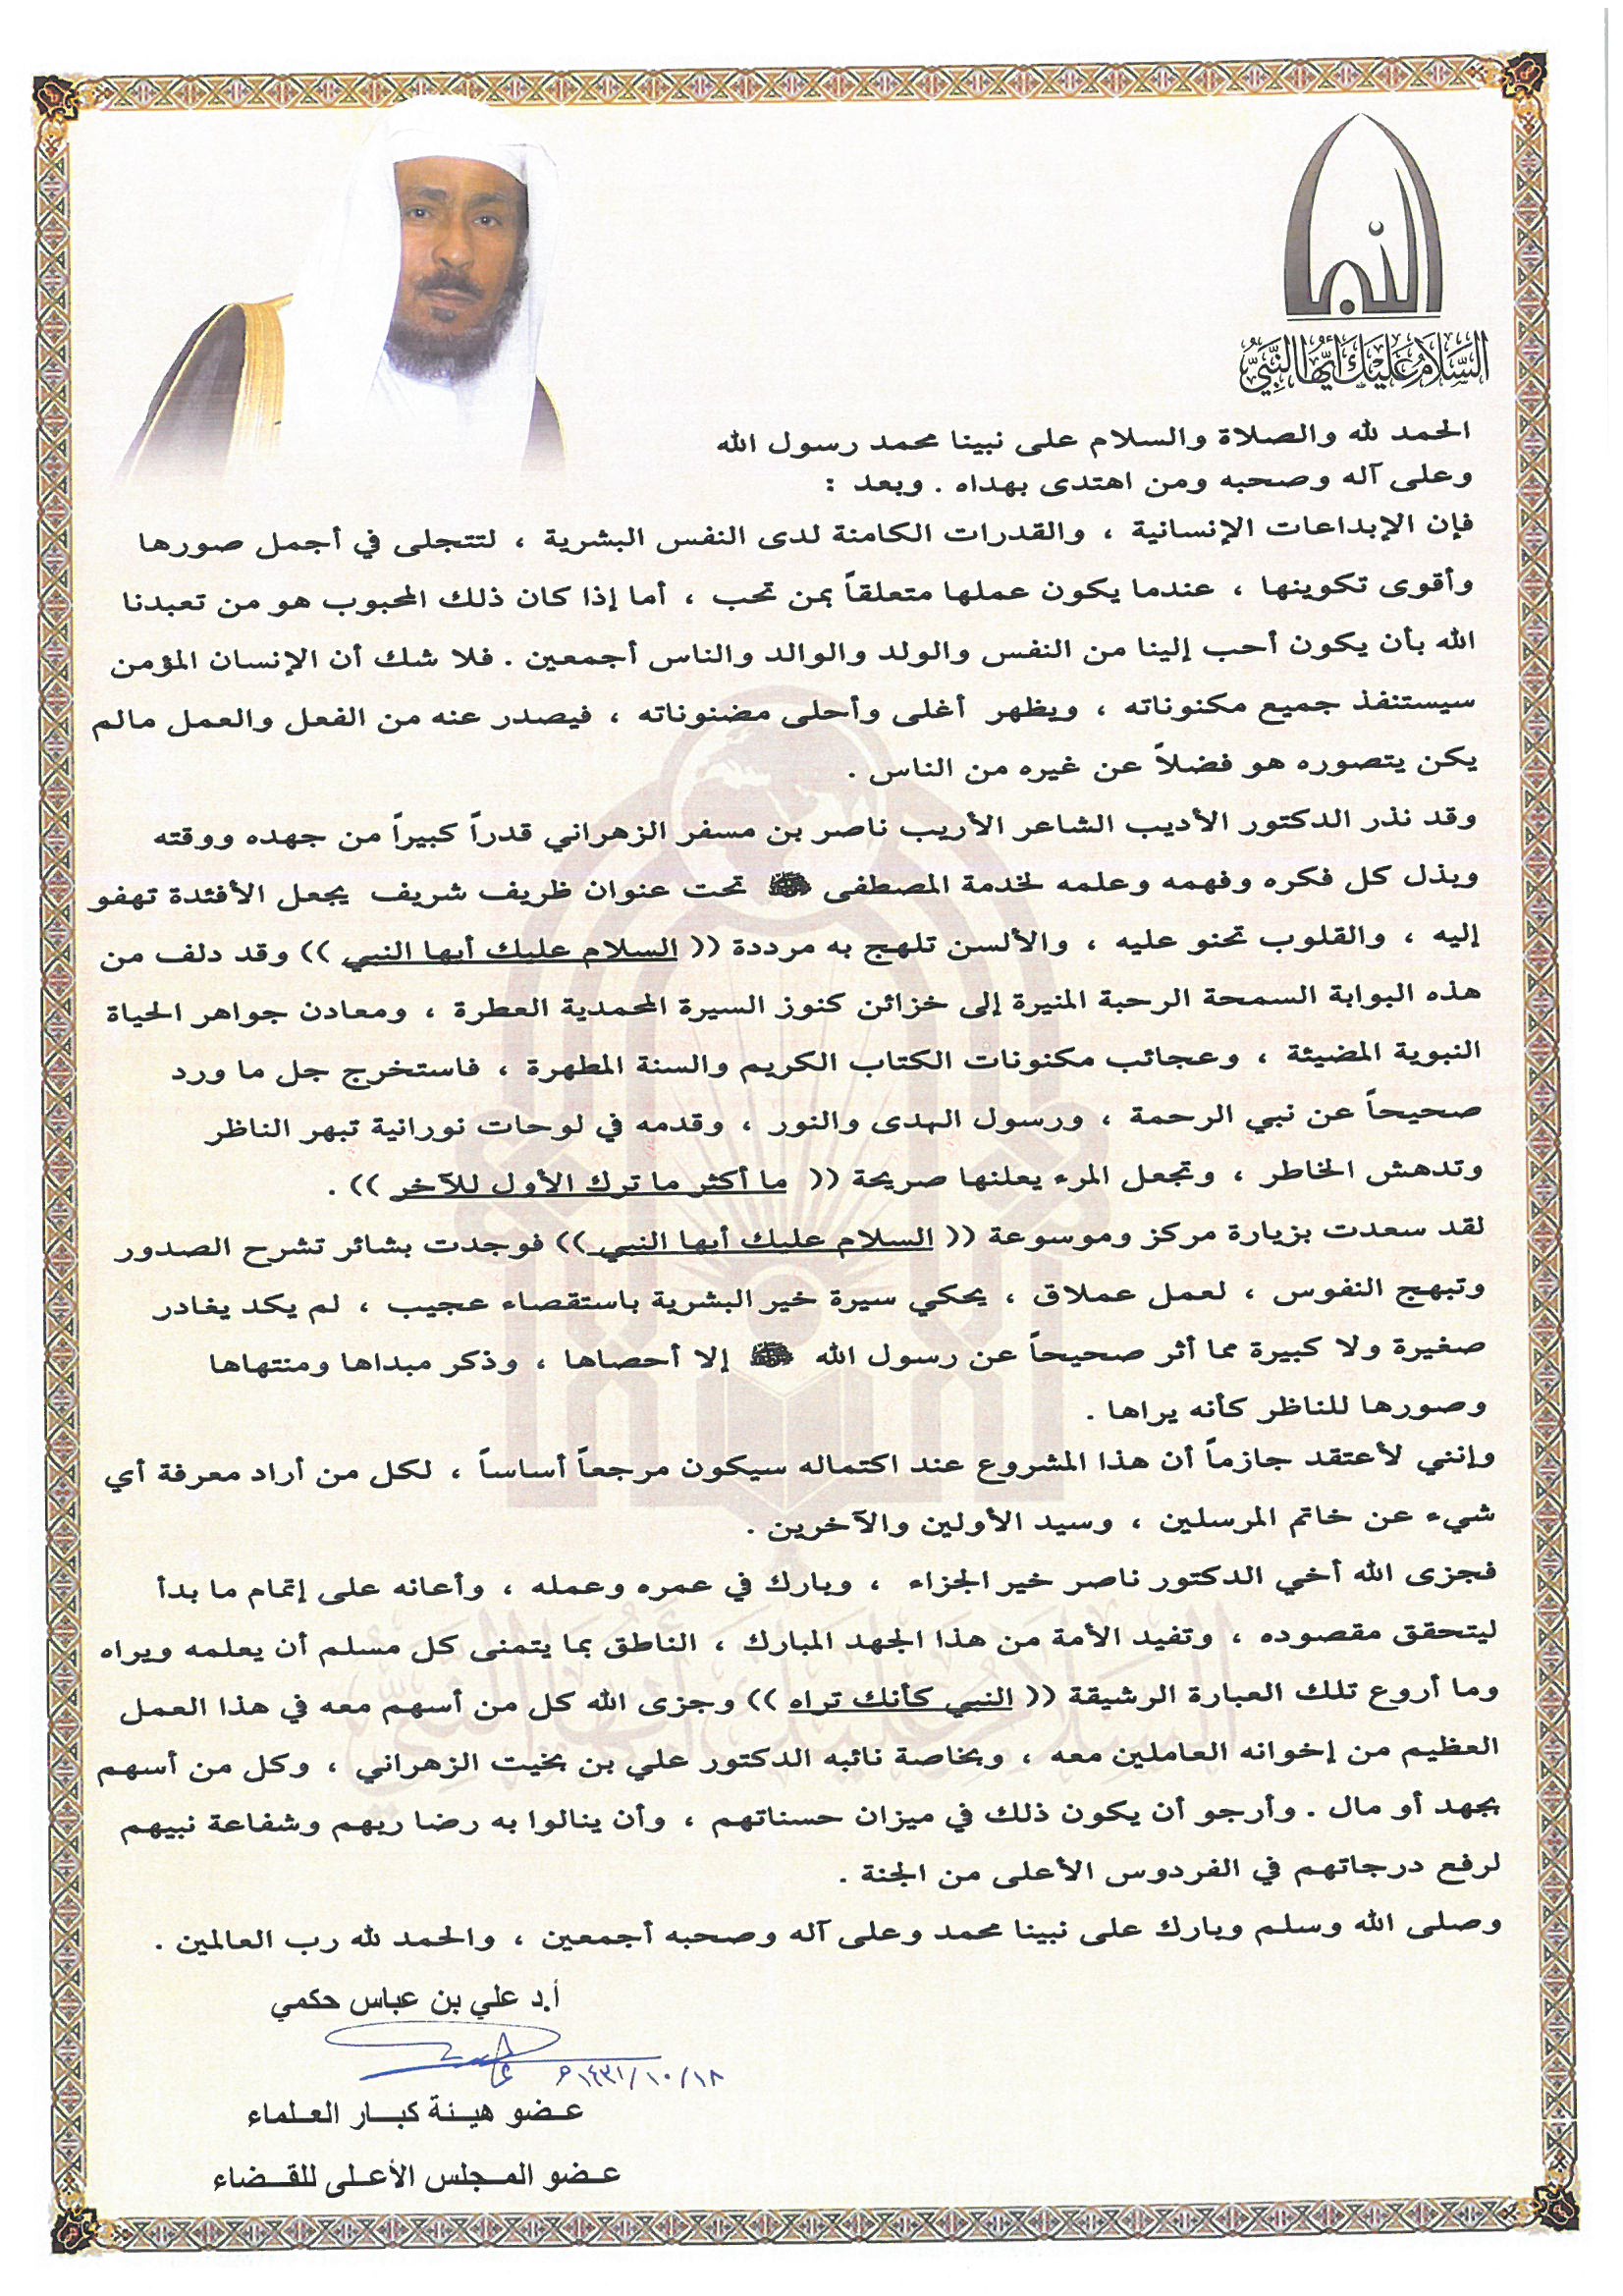 النبا
السلام عليك أيها النبي
الحمد لله والصلاة والسلام على نبينا محمد رسول الله
وعلى آله وصحبه ومن اهتدى بهداه . وبعد :
فإن الإبداعات الإنسانية ، والقدرات الكامنة لدى النفس البشرية ، لتتجلى في أجمل صورها
وأقوى تكوينها ، عندما يكون عملها متعلقاً بمن تحب ، أما إذا كان ذلك المحبوب هو من تعبدنا
الله بأن يكون أحب إلينا من النفس والولد والوالد والناس أجمعين . فلا شك أن الإنسان المؤمن
سيستنفذ جميع مكنوناته ، ويظهر أغلى وأحلى مضنوناته ، فيصدر عنه من الفعل والعمل مالم
يكن يتصوره هو فضلاً عن غيره من الناس .
وقد نذر الدكتور الأديب الشاعر الأريب ناصر بن مسفر الزهراني قدراً كبيراً من جهده ووقته
وبذل كل فكره وفهمه وعلمه لخدمة المصطفى ﷺ تحت عنوان ظريف شريف يجعل الأفئدة تهفو
إليه ، والقلوب تحنو عليه ، والألسن تلهج به مرددة (( السلام عليك أيها النبي )) وقد دلف من
هذه البوابة السمحة الرحبة المنيرة إلى خزائن كنوز السيرة المحمدية العطرة ، ومعادن جواهر الحياة
النبوية المضيئة ، وعجائب مكنونات الكتاب الكريم والسنة المطهرة ، فاستخرج جل ما ورد
صحيحاً عن نبي الرحمة ، ورسول الهدى والنور ، وقدمه في لوحات نورانية تبهر الناظر
وتدهش الخاطر ، وتجعل المرء يعلنها صريحة (( ما أكثر ما ترك الأول للآخر )) .
لقد سعدت بزيارة مركز وموسوعة (( السلام عليك أيها النبي )) فوجدت بشائر تشرح الصدور
وتبهج النفوس ، لعمل عملاق ، يحكي سيرة خير البشرية باستقصاء عجيب ، لم يكد يغادر
صغيرة ولا كبيرة مما أثر صحيحاً عن رسول الله ﷺ إلا أحصاها ، وذكر مبداها ومنتهاها
وصورها للناظر كأنه يراها .
وإنني لأعتقد جازماً أن هذا المشروع عند اكتماله سيكون مرجعاً أساساً ، لكل من أراد معرفة أي
شيء عن خاتم المرسلين ، وسيد الأولين والآخرين .
فجزى الله أخي الدكتور ناصر خير الجزاء ، وبارك في عمره وعمله ، وأعانه على إتمام ما بدأ
ليتحقق مقصوده ، وتفيد الأمة من هذا الجهد المبارك ، الناطق بما يتمنى كل مسلم أن يعلمه ويراه
وما أروع تلك العبارة الرشيقة (( النبي كأنك تراه )) وجزى الله كل من أسهم معه في هذا العمل
العظيم من إخوانه العاملين معه ، وبخاصة نائبه الدكتور علي بن بخيت الزهراني ، وكل من أسهم
بجهد أو مال . وأرجو أن يكون ذلك في ميزان حسناتهم ، وأن ينالوا به رضا ربهم وشفاعة نبيهم
لرفع درجاتهم في الفردوس الأعلى من الجنة .
وصلى الله وسلم وبارك على نبينا محمد وعلى آله وصحبه أجمعين ، والحمد لله رب العالمين .
أ.د علي بن عباس حكمي
١٤٣١/١٠/١٨هـ
عضو هيئة كبار العلماء
عضو المجلس الأعلى للقضاء